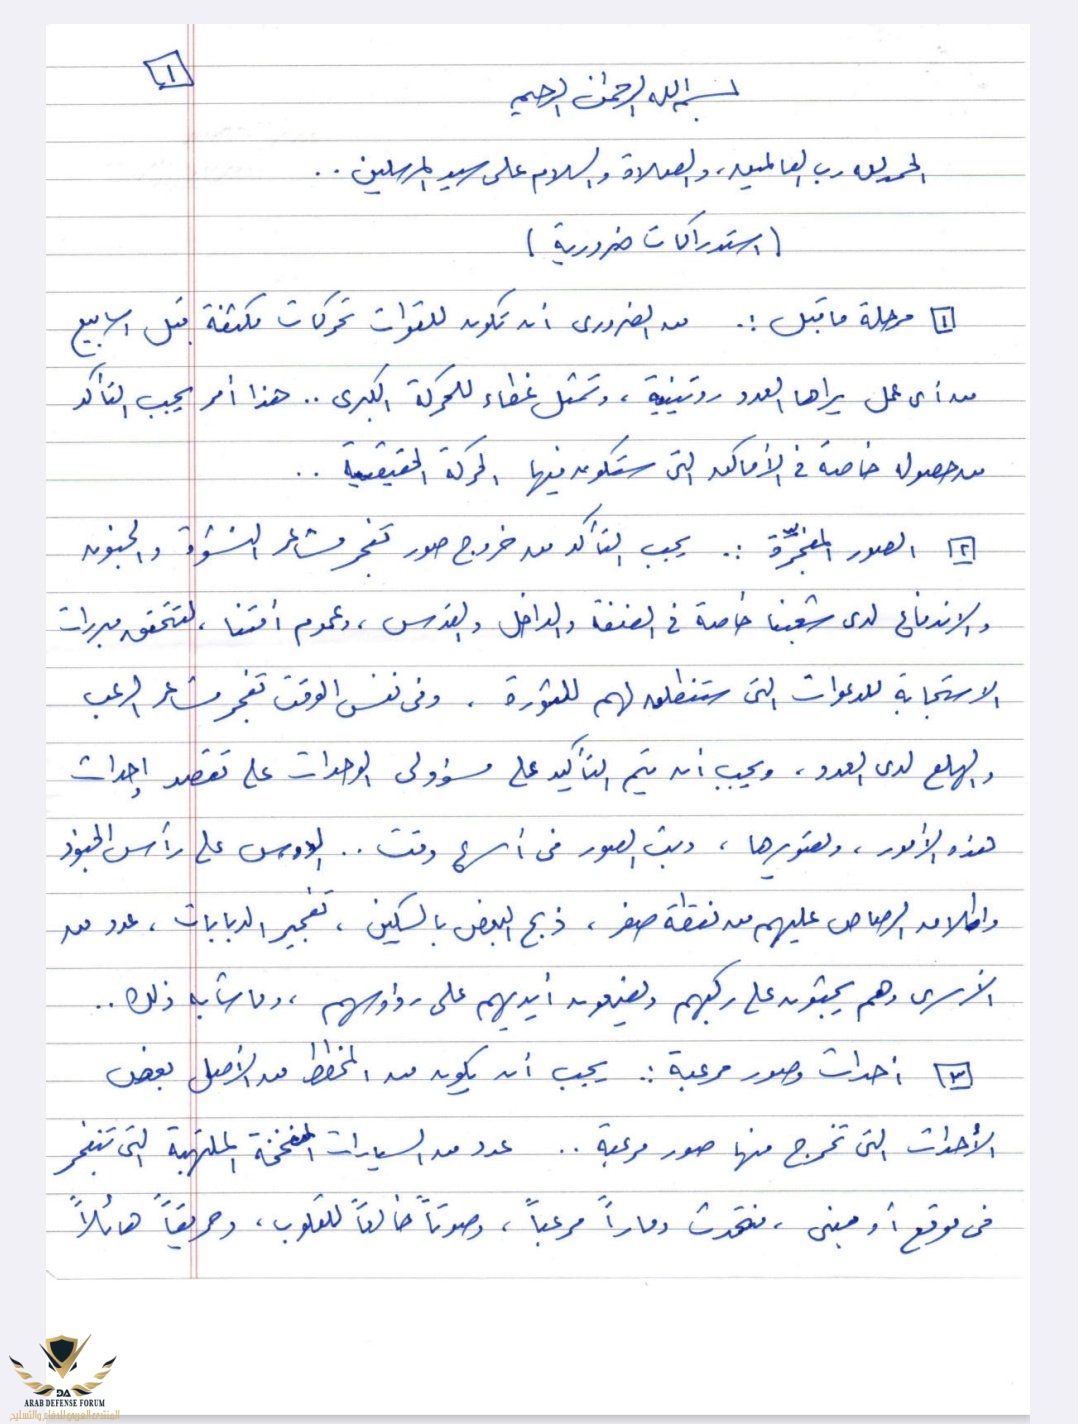 ١
بسم الله الرحمن الرحيم
الحمد لله رب العالمين، والصلاة والسلام على سيد المرسلين ..
(استدراكات ضرورية)
١ مرحلة ما قبل :. من الضرورى أن تكون للقوات تحركات مكثفة قبل أسابيع
من أى عمل يراها العدو روتينية، وتمثل غطاء للحركة الكبرى .. هذا أمر يجب التأكد
من حصوله خاصة فى الأماكن التى ستكون فيها الحركة الحقيقية ..
٢ الصور المفجرة :. يجب التأكد من خروج صور تفجر مشاعر النشوة والجنون
والاندفاع لدى شعبنا خاصة فى الضفة والداخل والقدس، وعموم أمتنا، لتتحقق مبررات
الاستجابة للدعوات التى ستنطلق لهم للثورة. وفى نفس الوقت تفجر مشاعر الرعب
والهلع لدى العدو، ويجب أن يتم التأكيد على مسؤولى الوحدات على تقصد إحداث
هذه الأمور، وتصويرها، وبث الصور فى أسرع وقت .. الدوس على رأس الجنود
وإطلاق الرصاص عليهم من نقطة صفر، ذبح البعض بالسكين، تفجير الدبابات، عدد من
الأسرى وهم يجثون على ركبهم ويضعون أيديهم على رؤوسهم، وما شابه ذلك ..
٣ أحداث وصور مرعبة :. يجب أن يكون من المخطط من الأصل بعض
الأحداث التى تخرج منها صور مرعبة .. عدد من السيارات المفخخة الملتهبة التى تنفجر
فى موقع أو مبنى، فتحدث دماراً مرعباً، وصوتاً خالعاً للقلوب، وحريقاً هائلاً
DA
ARAB DEFENSE FORUM
المنتدى العربي للدفاع والتسليح